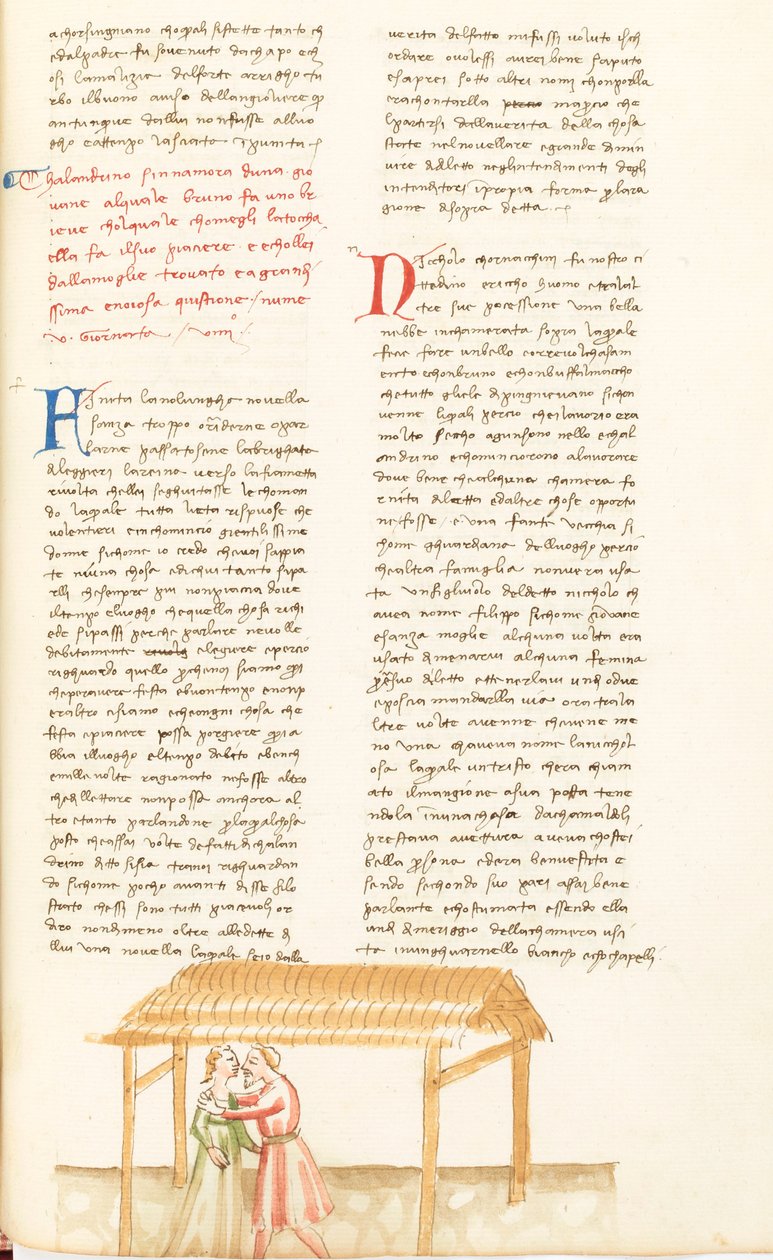 achorsingniano choquali sistette tanto ch
edalpadre fu sovenuto dachapo ech
osi lamalizie delforte arrigho tu
rbo ilbuono aviso dellangioliere q
antunque dallui nonfusse alluo
gho eattenpo lasciato Inpunita
Chalandrino sinnamora duna gio
vane alquale bruno fa uno br
ieve cholquale chomegli latoccha
ella fa ilsuo piacere e echollei
dallamoglie trovato ea grandi
ssima enoiosa quistione nume
v. Giornata viiiiº
Finita lanolungha novella
sanza troppo oriderne o par
larne passatosene labrighata
Aleggieri lareina verso lafiametta
rivolta chellei seghuitasse lechoman
do laquale tutta lieta rispuose che
volentieri einchomincio gientilissime
donne sichome io credo chevoi sappia
te niuna chosa edichui tanto sipa
rlli chesenpre piu nonpiaccia dove
iltenpo elluogho chequella chosa richi
ede sipassi perche parlare nevolle
debitamente elegiere epercio
righuardo quello perchenoi siamo qui
cheperavere festa ebuontenpo enonp
eraltro cisiamo echeongni chosa che
festa epiacere possa porgiere qui a
bbia illuogho eltenpo debito ebench
emille volte ragionato nefosse altro
chedillettare nonpossa anchora al
tro etanto parlandone perlaqualchosa
posto cheassai volte defatti dichalan
drino ditto sisia tranoi righuardan
do sichome pocho avanti disse filo
strato chessi sono tutti piacevoli or
dro nondimeno oltre alledette di
llvi una novella laquale seio dalla
verita delfatto mifussi voluto isch
ordare ovolessi avrei bene saputo
esaprei sotto altri nomi chonporlla
erachontarlla mapercio che
lpartirsi dallaverita della chosa
state nelnovellare egrande dimin
vire didiletto neglintendimenti degli
intenditori ipropia forma perlara
gione disopra detta
n
Niccholo chornacchini fu nostro ci
ttadino ericcho huomo etralal
tre sue pocessione una bella
nebbe inchamerata sopra laquale
fece fare unbello orrevolchasam
ento echonbruno echonbuffalmaccho
chetutto gliele dipingniessano sichon
venne liquali percio cheilavorio era
molto seccho agunsono nello echal
andrino echominciorono alavorare
dove bene chealchuna chamera fo
rnita diletta edaltre chose opportu
ne fosse e una fante vecchia si
chome ghuardana delluogho percio
chealtra famiglia nonvera usa
ta unfigliuolo deldetto niccholo ch
avea nome filippo sichome giovane
esanza moglie alchuna volta era
usato dimenarvi alchuna femina
persuo diletto ettenerlavi undi odve
eposcia mandarlla via ora tralla
ltre volte avenne chevene me
no una chaveva nome lanicchol
osa laquale untristo chera chiam
ato ilmangione asua posta tene
ndola innunachasa dachamaldoli
prestava avettura aveva chostei
bella persona edera benvestita e
sendo sechondo suo pari assai bene
parlante echostumata essendo ella
undi dimeriggio dellachamera usci
ta inunghuarnello biancho echochapelli